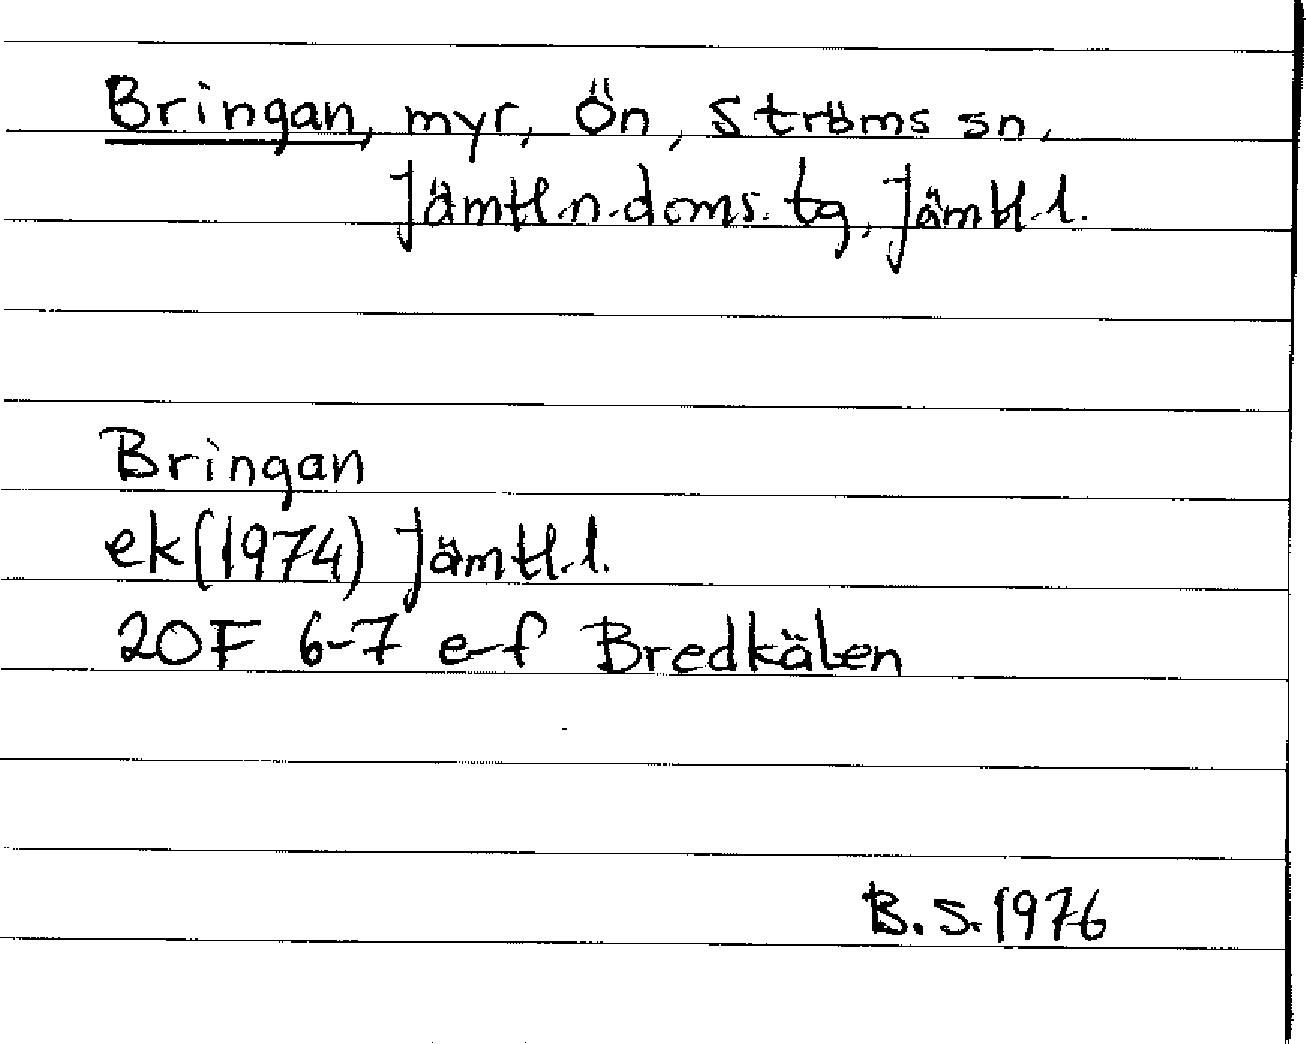 Bringan, myr, Ön, Ströms sn,
Jämtl.n.doms.tg, Jämtl.l.
Bringan
ek(1974) Jämtl.l.
20F 6-7 e-f Bredkälen
B.S. 1976